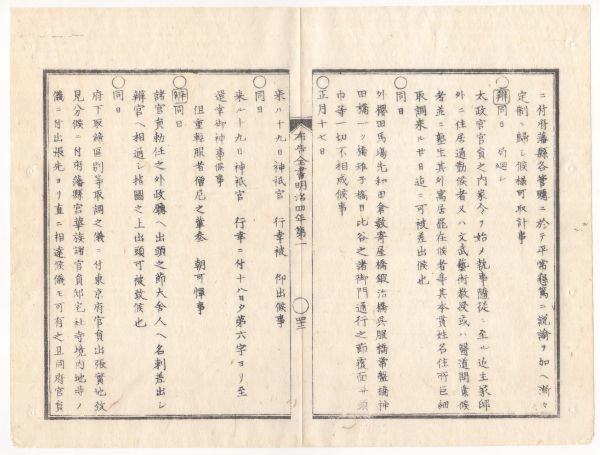 ニ付府藩縣各管轄ニ於テ平常懇篤ニ説諭ヲ加ヘ漸々
定制ニ歸シ候樣可取計事
○辨同日
太政官官員之内家令ヲ始メ執事隨從ニ至ル迄主家邸
外ニ住居通勤候者又ハ文武藝術教授或ハ醫道開業候
者並ニ塾生其外寓居罷在候者等其本貫姓名住所巨細
取調來ル廿日迄ニ可被差出候也
○同日
外櫻田馬場先和田倉數寄屋橋鍛冶橋呉服橋常盤橋神
田橋一ツ橋雉子橋日比谷之諸御門通行之節覆面並頭
巾等一切不相成候事
○正月十七日
布告全書明治四年第一
○
來ル十九日神祇官 行幸被 仰出候事
○同日
來ル十九日神祇官 行幸ニ付十八日夕第六字ヨリ至
還幸御神事候事
但重輕服者僧尼之輩參 朝可憚事
○辨同日
諸官員勅任之外政廳ヘ出頭之節大舍人ヘ名刺差出シ
辨官ヘ相通シ指圖之上出頭可被致候也
○同日
府下取締區別等取調之儀ニ付東京府官員出張實地致
見分候ニ付府藩縣宮華族諸官員邸宅社寺境内地等ノ
儀ニ付出張先ヨリ直ニ相達候儀モ可有之且同府官員